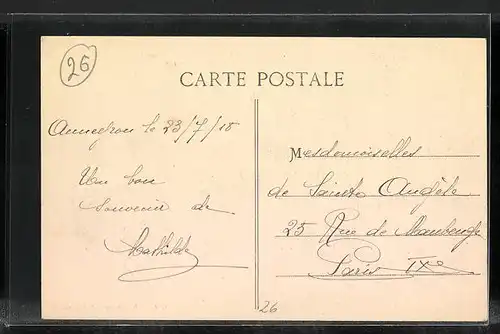 26
CARTE POSTALE
le 23/7/18
Un bon
souvenir de
Mathilde
Mesdemoiselles
de Sainte Angèle
25 Rue de Maubeuge
Paris IXe
26